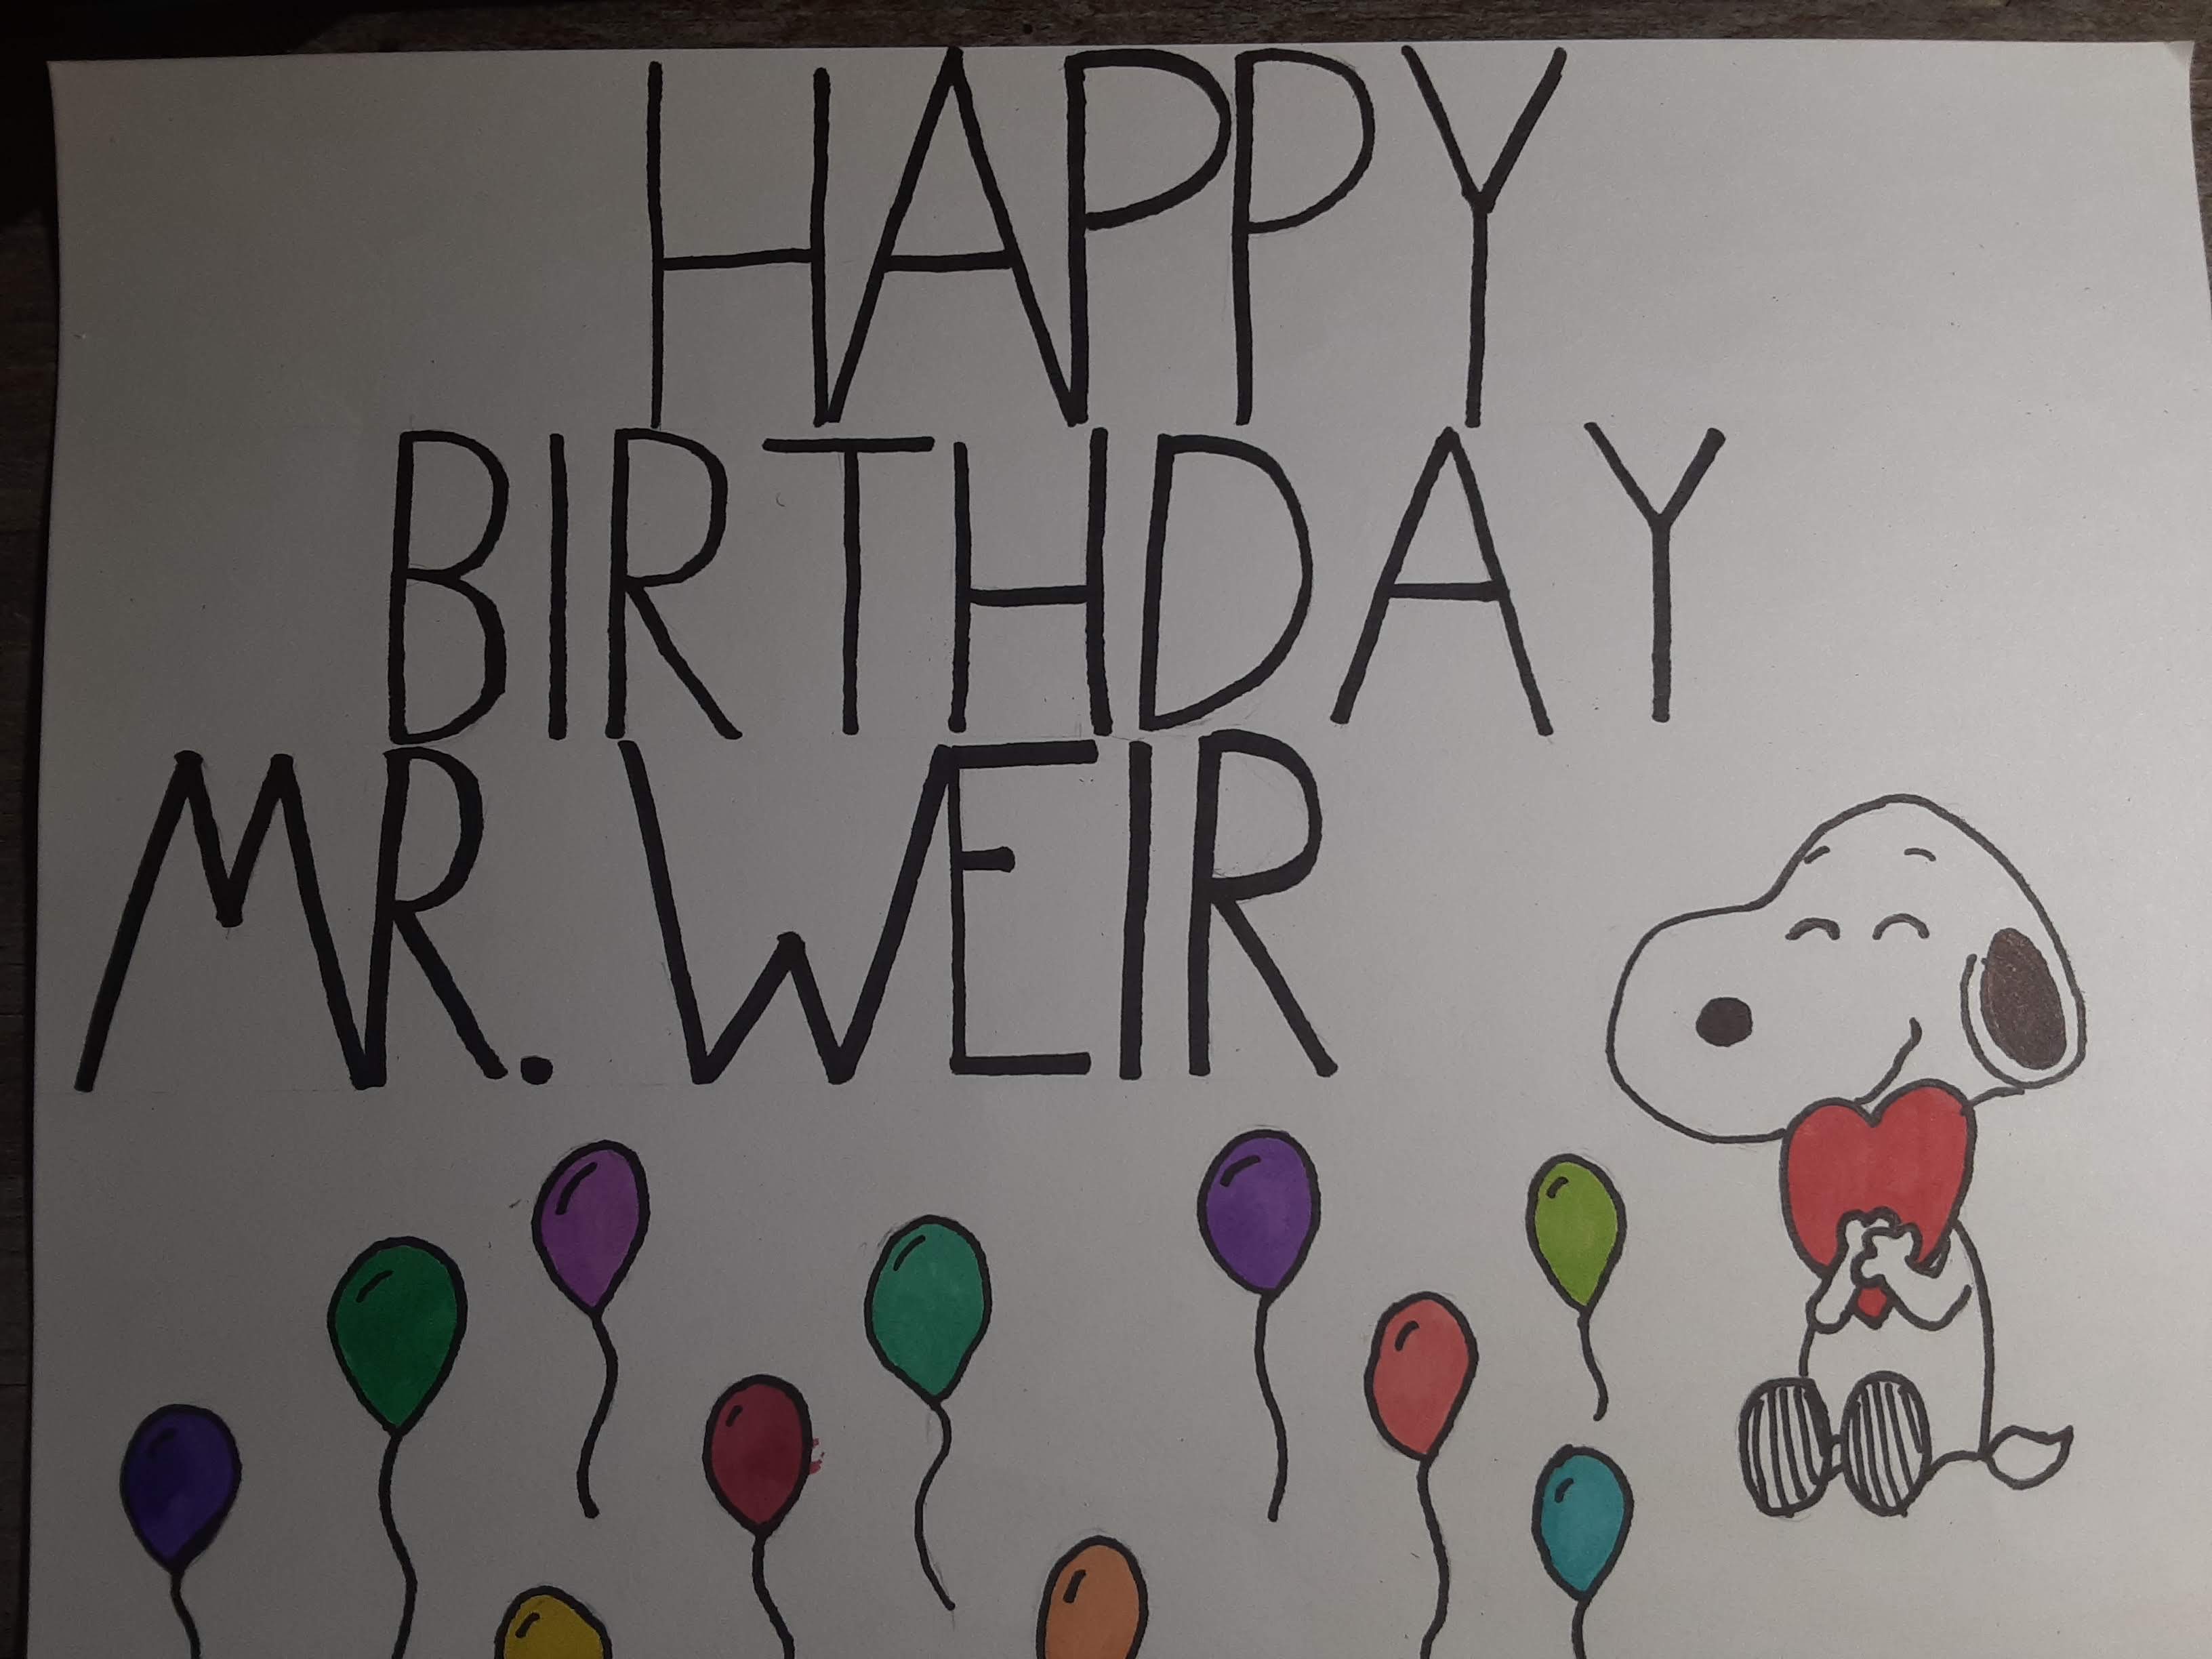 HAPPY
BIRTHDAY
MR. WEIR